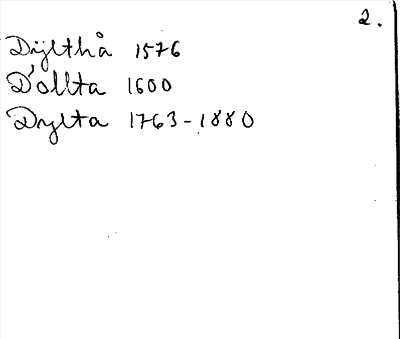 2.
Dijlthå 1576
D'ollta 1600
Dylta 1763-1880